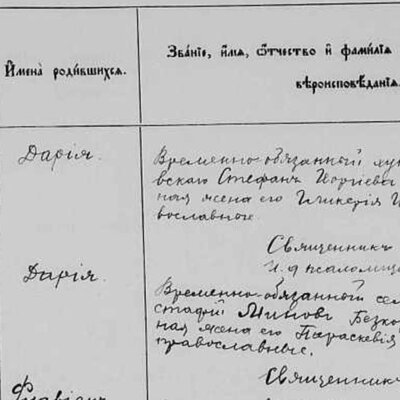 Имена̀ роди́вшихся.
Зва́нїе, и́мѧ, ѻ҆́тчество и҆ фами́лїѧ
вѣроисповѣ́данїѧ.
Дарія.
Временно-обязанный
вскаго Стефанъ
ная жена его Гликерія
вославное.
Священникъ
И. д. псаломщ
Дарія.
Временно-обязанный сел
стафій Миновъ Безко
ная жена его Параскевія
православные.
Священникъ